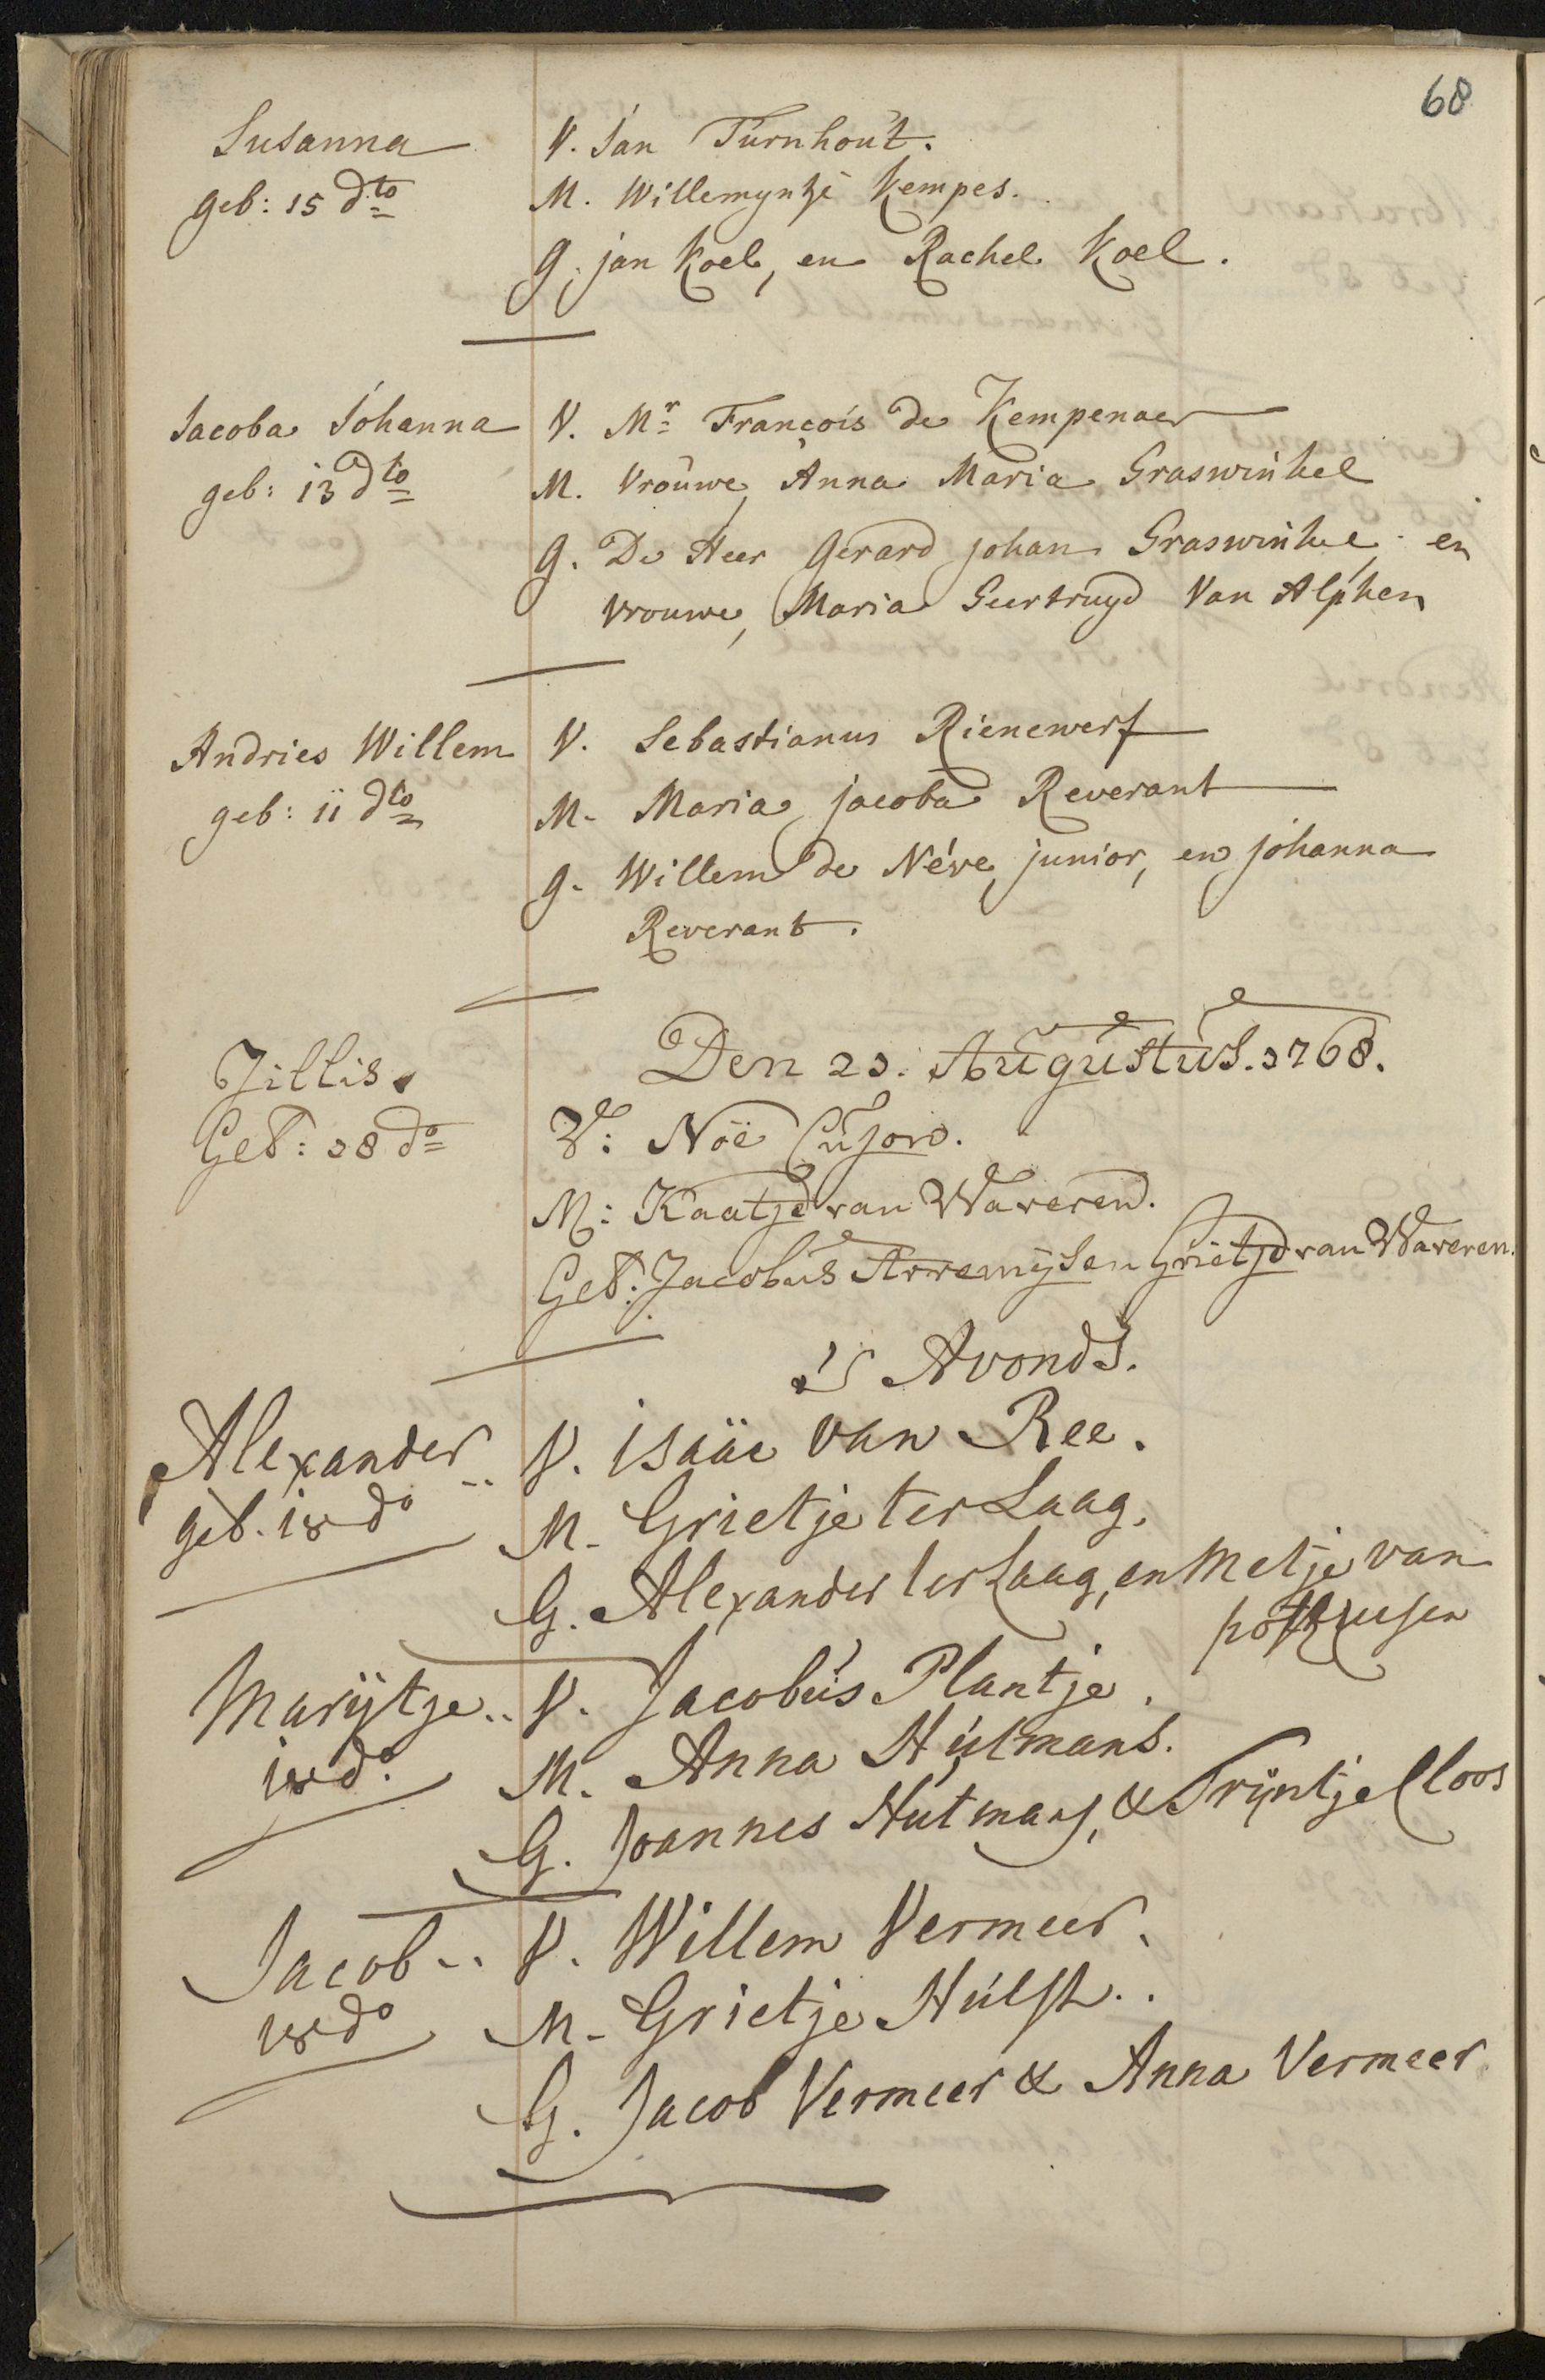 68
Susanna V. Jan Turnhout.
geb: 15 dto M. Willemyntje Kempes.
G. jan Koel, en Rachel Koel.
Jacoba Johanna V. Mr François de Kempenaer
geb: 13 dto M. Vrouwe Anna Maria Graswinkel
G. De Heer Gerard johan Graswinkel en
vrouwe, Maria Geertruyd Van Alphen
Andries Willem V. Sebastianus Rienewerf
geb: 11 dto M. Maria jacoba Reverant
G. Willem de Néve junior, en johanna
Reverant.
Den 21. Augustus. 1768.
Jillis.
Geb: 18 do V: Noë
M: Kaatje van Waveren.
Get: Jacobus Grietje van Waveren.
's Avonds.
Alexander.. V. isaäc van Ree.
geb. 18 do M. Grietje ter Laag.
G. Alexander ter Laag, en Metje van
pothuysen
Marijtje.. V. Jacobus Plantje.
18 do. M. Anna Hutmans.
G. Joannes Hutmans, & Trijntje Cloos
Jacob.. V. Willem Vermeer.
18 do M. Grietje Hulst..
G. Jacob Vermeer & Anna Vermeer